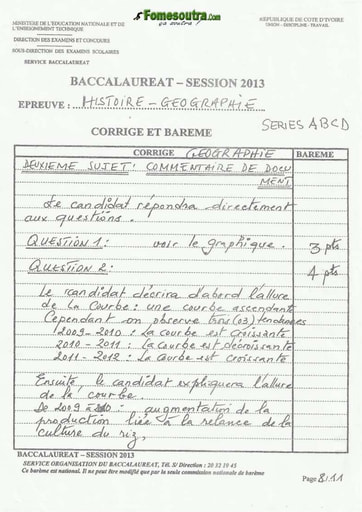 Fomesoutra.com
ça soutra !
MINISTERE DE L'EDUCATION NATIONALE ET DE
L'ENSEIGNEMENT TECHNIQUE
DIRECTION DES EXAMENS ET CONCOURS
SOUS-DIRECTION DES EXAMENS SCOLAIRES
SERVICE BACCALAUREAT
REPUBLIQUE DE COTE D'IVOIRE
UNION - DISCIPLINE - TRAVAIL
BACCALAUREAT – SESSION 2013
EPREUVE : HISTOIRE - GEOGRAPHIE
SERIES ABCD
CORRIGE ET BAREME
CORRIGE GEOGRAPHIE BAREME
DEUXIEME SUJET: COMMENTAIRE DE DOCU
MENT
Le candidat répondra directement
aux questions.
QUESTION 1: voir le graphique. 3 pts
QUESTION 2: 4 pts
Le candidat décrira d'abord l'allure
de la courbe : une courbe ascendante
Cependant on observe trois (03) tendances
2009-2010 : La courbe est croissante
2010-2011 : La courbe est décroissante
2011-2012 : La courbe est croissante
Ensuite, le candidat expliquera l'allure
de la courbe.
De 2009 à 2010 : augmentation de la
production liée à la relance de la
culture du riz,
BACCALAUREAT – SESSION 2013
SERVICE ORGANISATION DU BACCALAUREAT, Tél. S/ Direction : 20 32 19 45
Ce barème est national. Il ne peut être modifié que par la seule commission nationale de barème
Page 8/11